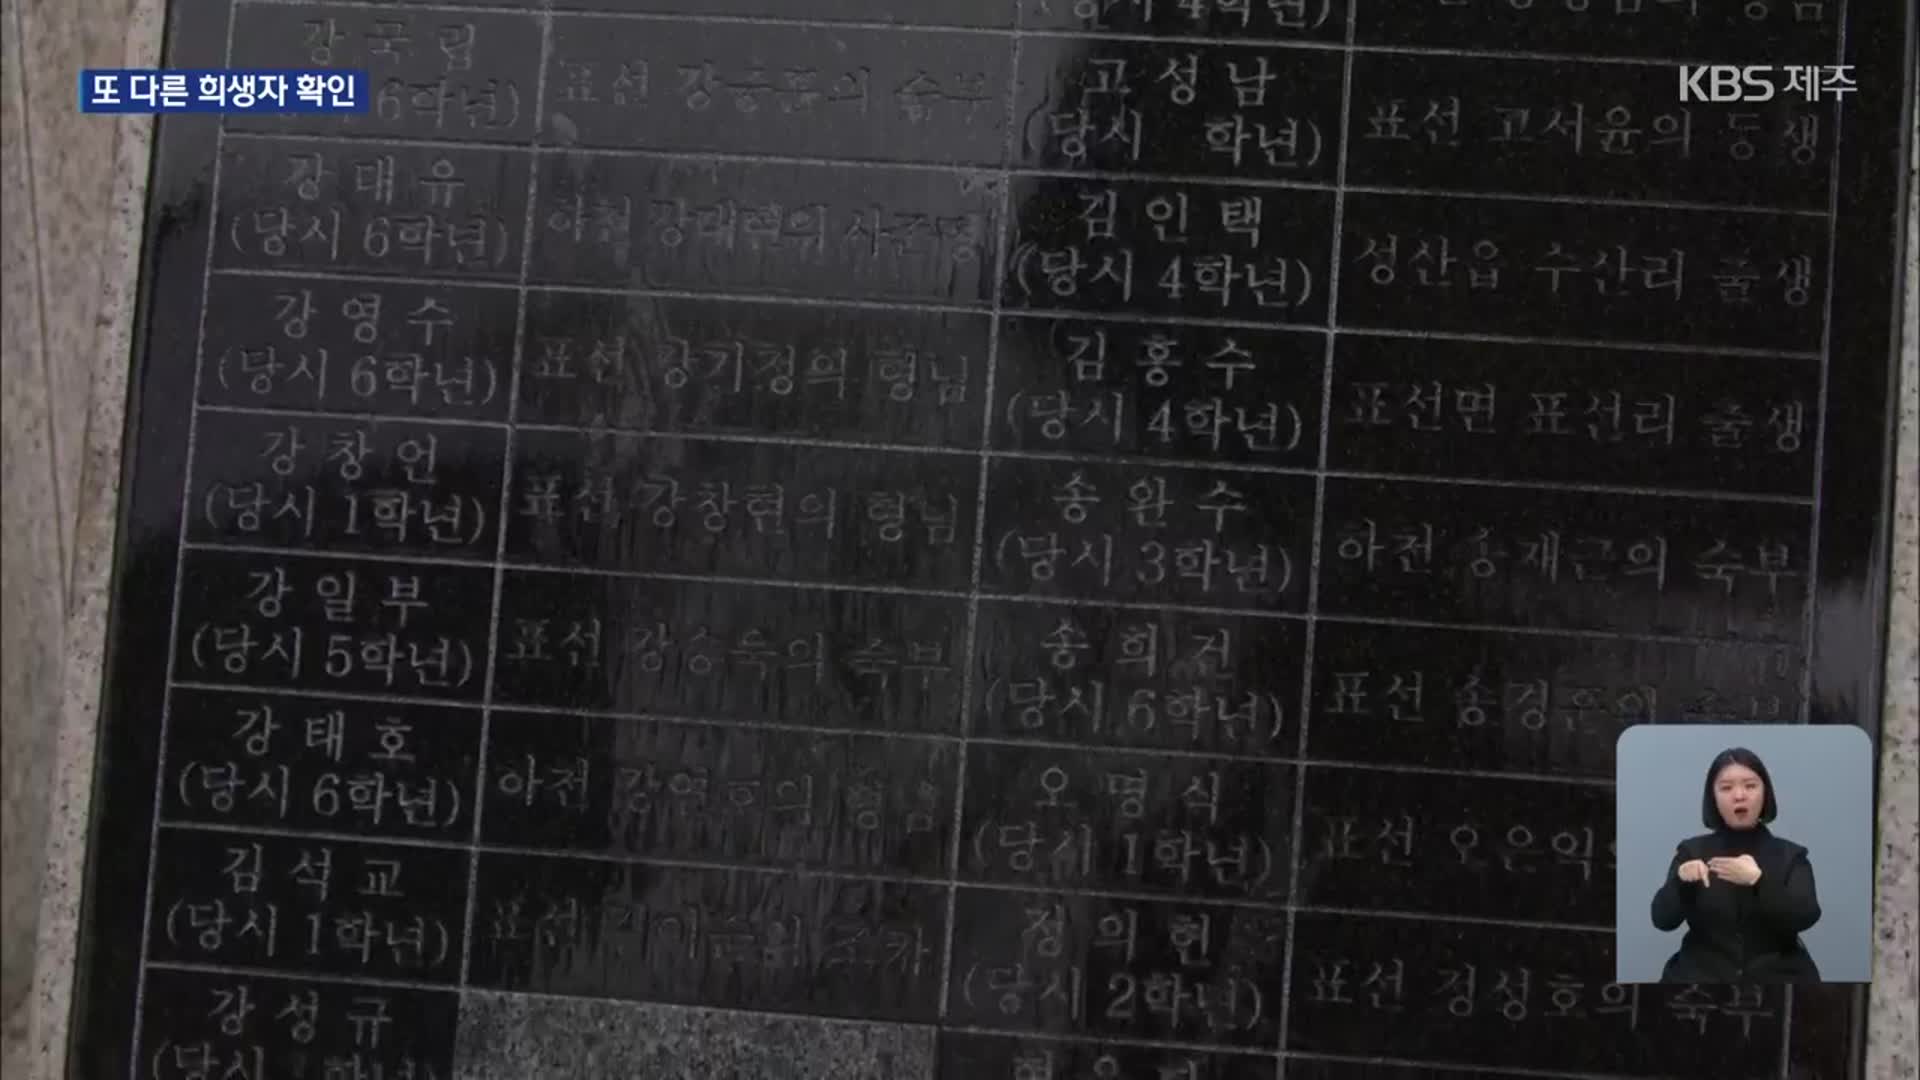 또 다른 희생자 확인
KBS 제주
강 국 립
6학년)
강 대 유
(당시 6학년)
강 영 수
(당시 6학년)
표선 강기정의 형님
강 창 언
(당시 1학년)
표선 강창현의 형님
강 일 부
(당시 5학년)
표선 강승욱의 숙부
강 태 호
(당시 6학년)
하천
형님
김 석 교
(당시 1학년)
표선
조카
강 성 규
(당시
학년)
(당시 4학년)
고 성 남
(당시 학년)
표선 고서윤의 동생
김 인 택
(당시 4학년)
성산읍 수산리 출생
김 홍 수
(당시 4학년)
표선면 표선리 출생
송 완 수
(당시 3학년)
하천 송재근의 숙부
송 희 건
(당시 6학년)
표선
숙부
오 명 식
(당시 1학년)
표선 오은익
정 의 현
(당시 2학년)
표선 정성호의 숙부